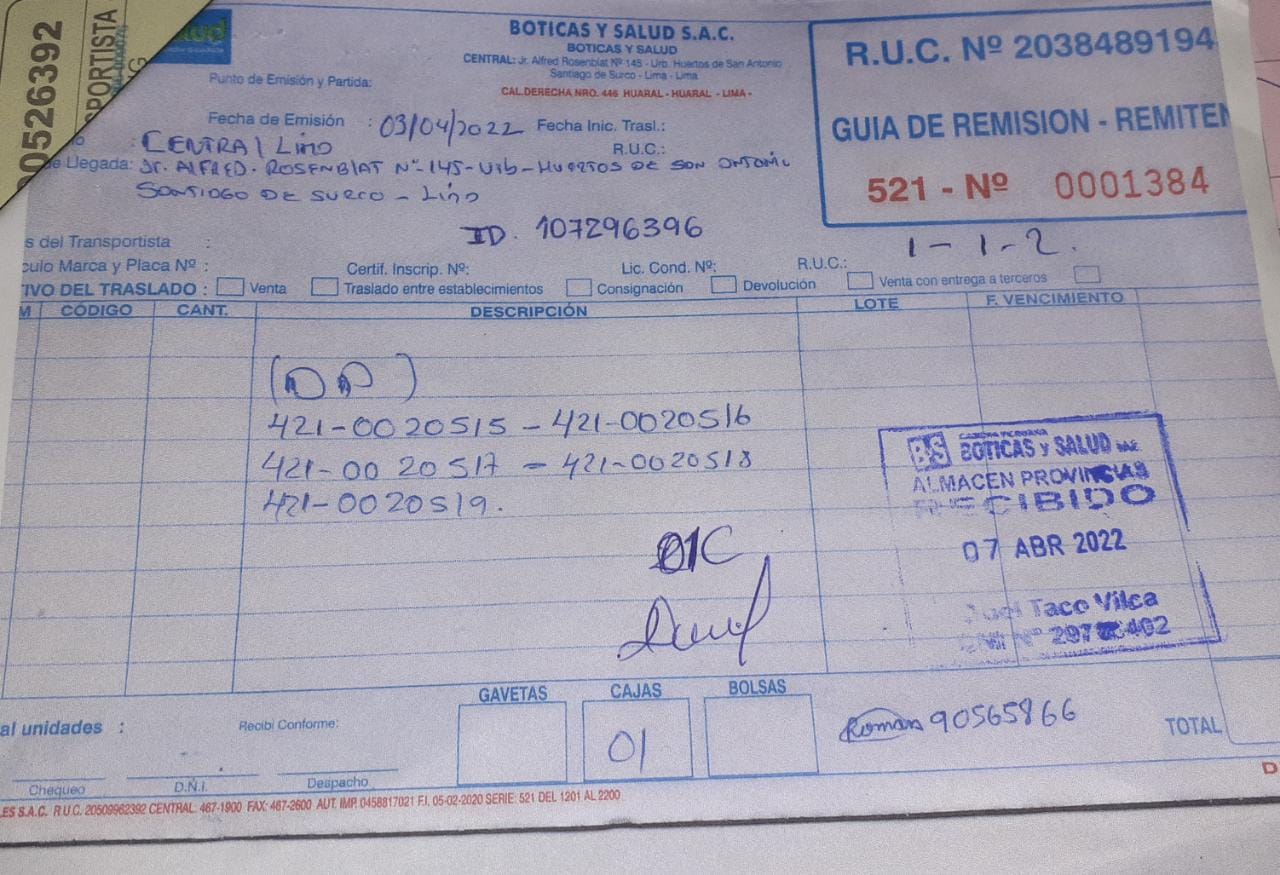 00526392
PORTISTA
BOTICAS Y SALUD S.A.C.
BOTICAS Y SALUD
CENTRAL: Jr. Alfred Rosenblat Nº 145 - Urb. Huertos de San Antonio
Santiago de Surco - Lima - Lima
CAL.DERECHA NRO. 446 HUARAL - HUARAL - LIMA -
R.U.C. Nº 2038489194
GUIA DE REMISION - REMITEN
521 - Nº 0001384
Punto de Emisión y Partida:
Fecha de Emisión : 03/04/2022 Fecha Inic. Trasl.:
: CENTRAL Lima R.U.C.:
de Llegada: Jr. ALFRED. ROSENBLAT Nº-145-Urb-HUERTOS DE SAN ANTONIO
SANTIAGO DE SURCO - Lima
ID. 107296396
1-1-2.
s del Transportista :
culo Marca y Placa Nº : Certif. Inscrip. Nº: Lic. Cond. Nº: R.U.C.:
TIVO DEL TRASLADO : Venta Traslado entre establecimientos Consignación Devolución Venta con entrega a terceros
M CÓDIGO CANT. DESCRIPCIÓN LOTE F. VENCIMIENTO
421-0020515 - 421-0020516
421-0020517 - 421-0020518
421-0020519.
BS BOTICAS y SALUD SAC
ALMACEN PROVINCIAS
RECIBIDO
07 ABR 2022
Taco Vilca
GAVETAS CAJAS BOLSAS
01
al unidades : Recibi Conforme: Roman 90565866 TOTAL
Chequeo D.N.I. Despacho
LES S.A.C. R.U.C. 20509962392 CENTRAL: 467-1900 FAX: 467-2600 AUT. IMP. 0458817021 F.I. 05-02-2020 SERIE: 521 DEL 1201 AL 2200
D